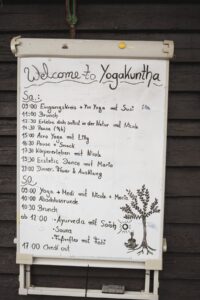 Welcome to Yogakuntha
Sa.:
09:00 Eingangskreis + Yoga mit Susi
11:00 Brunch
12:30 Erlebe dich selbst in der Natur mit Nicole
14:30 Pause
15:00 Acro Yoga mit Lilly
16:30 Pause + Snack
17:30 Körperreisen mit Nicole
19:30 Ecstatic Dance mit Mario
21:00 Dinner, Feuer & Ausklang
So
09:00 Yoga + Medi mit Nicole + Mario
10:00 Abschlussrunde
10:30 Brunch
ab 12:00 • Ayurveda mit
• Sauna
mit
17:00 Check out